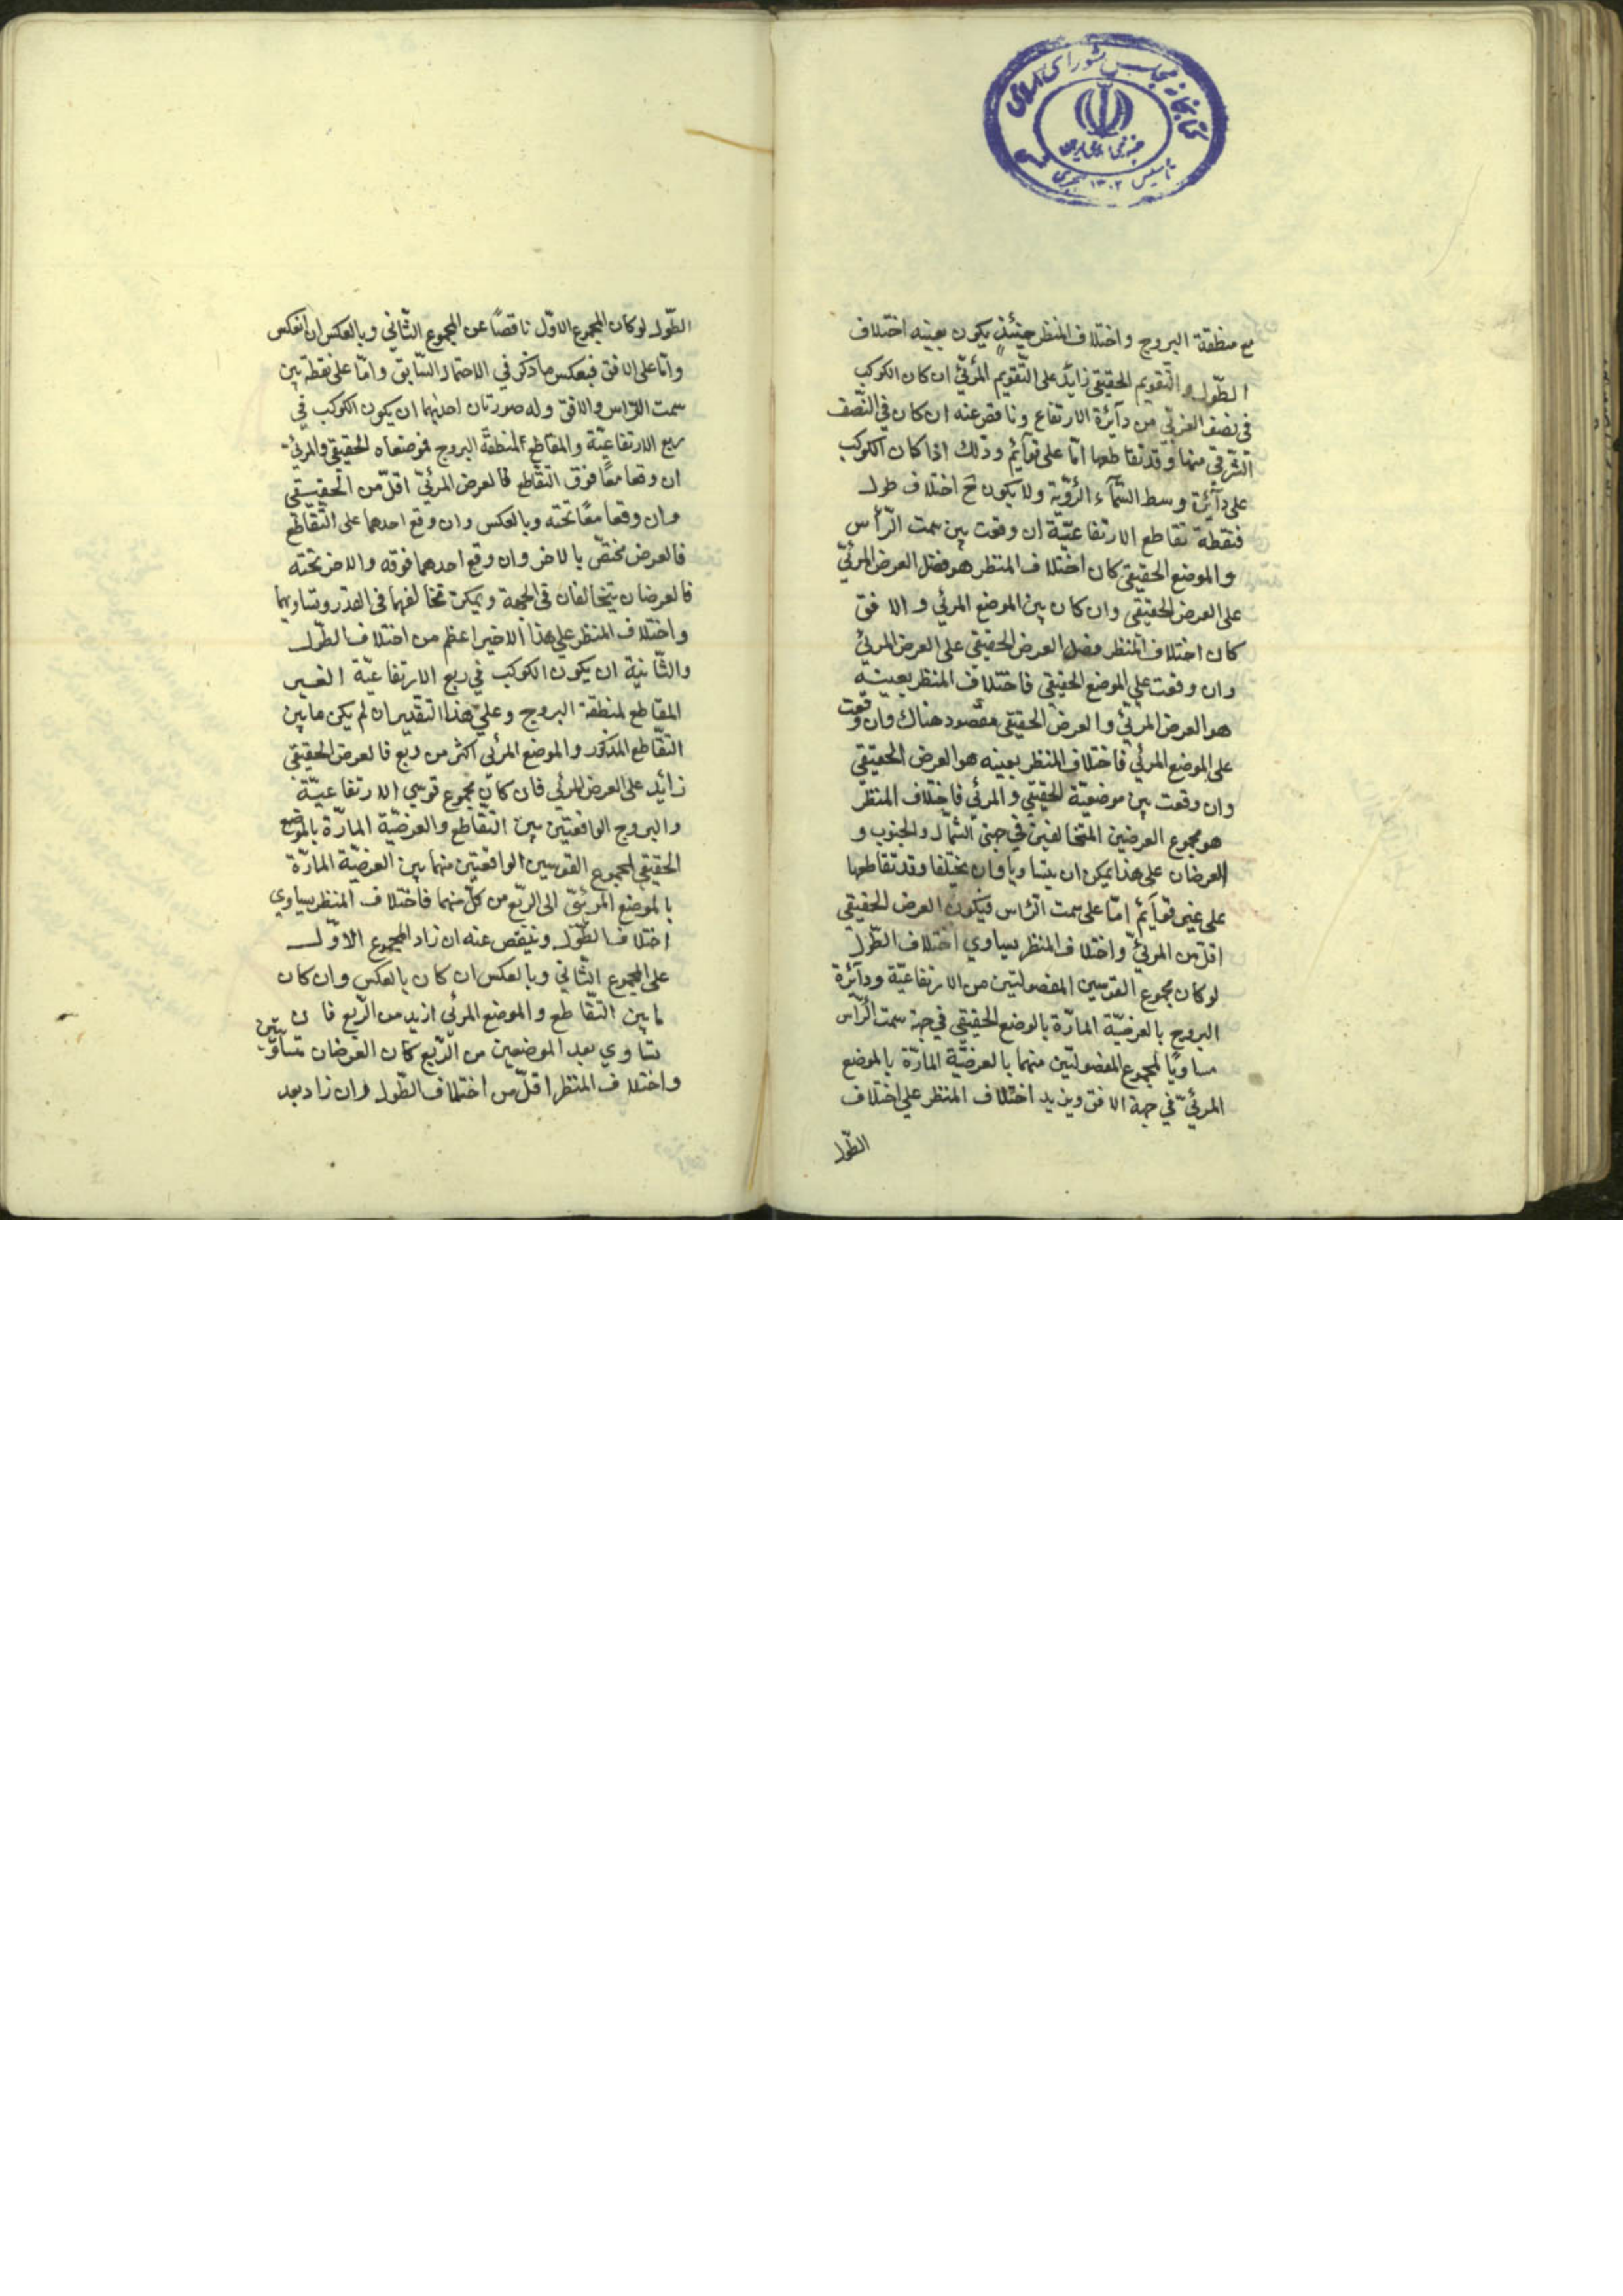 كتابخانه مجلس شورای اسلامی
تأسیس ۱۳۰۲ هجری
مع منطقة البروج واختلاف المنظر حينئذٍ يكون بعينه اختلاف
الطّول والتّقويم الحقيقي زايد على التّقويم المرئيّ ان كان الكوكب
في نصف الغربّي من دآئرة الارتفاع وناقص عنه ان كان في النّصف
الشّرقي منها وقد تقاطعها امّا على قوآئم وذلك اذا كان الكوكب
على دآئرة وسط السّمآء الرّؤية ولا يكون ح اختلاف طول
فنقطة تقاطع الارتفاعيّة ان وقعت بين سمت الرّأس
والموضع الحقيقي كان اختلاف المنظر هو فضل العرض المرئيّ
على العرض الحقيقي وان كان بين الموضع المرئي والافق
كان اختلاف المنظر فضل العرض الحقيقي على العرض المرئيّ
وان وقعت على الموضع الحقيقي فاختلاف المنظر بعينه
هو العرض المرئيّ والعرض الحقيقي مقصود هناك وان وقعت
على الموضع المرئي فاختلاف المنظر بعينه هو العرض الحقيقي
وان وقعت بين موضعيّة الحقيقي والمرئي فاختلاف المنظر
هو مجموع العرضين المتخالفين في جهتي الشّمال والجنوب و
العرضان على هذا يمكن ان يتساويا وان يختلفا وقد تقاطعها
على غير قوآئم امّا على سمت الرّاس فيكون العرض الحقيقي
اقلّ من المرئيّ واختلاف المنظر يساوي اختلاف الطّول
لو كان مجموع القوسين المفصولتين من الارتفاعيّة ودآئرة
البروج بالعرضيّة المارّة بالوضع الحقيقي في جهة سمت الرّاس
مساويًا لمجموع المفصولتين منهما بالعرضيّة المارّة بالموضع
المرئيّ في جهة الافق ويزيد اختلاف المنظر على اختلاف
الطّول
الطّول لو كان المجموع الاوّل ناقصًا عن المجموع الثّاني وبالعكس ان انعكس
وامّا على الافق فبعكس ما ذكر في الاحتمال السّابق وامّا على نقطة بين
سمت الرّاس والافق وله صورتان احديهما ان يكون الكوكب في
ربع الارتفاعيّة والمقاطع لمنطقة البروج فموضعاه الحقيقي والمرئيّ
ان وقعا معًا فوق التّقاطع فالعرض المرئيّ اقلّ من الحقيقي
وان وقعا معًا تحته وبالعكس وان وقع احدهما على التّقاطع
فالعرض مختصّ بالاخر وان وقع احدهما فوقه والاخر تحته
فالعرضان يتخالفان في الجهة ويمكن تخالفهما في القدر وتساويهما
واختلاف المنظر على هذا الاخير اعظم من اختلاف الطّول
والثّانية ان يكون الكوكب في ربع الارتفاعيّة الغير
المقاطع لمنطقة البروج وعلى هذا التقدير ان لم يكن ما بين
التّقاطع المذكور والموضع المرئي اكثر من ربع فالعرض الحقيقي
زائد على العرض المرئي فان كان مجموع قوسي الارتفاعيّة
والبروج الواقعتين بين التّقاطع والعرضيّة المارّة بالموضع
الحقيقي لمجموع القوسين الواقعتين منهما بين العرضيّة المارّة
بالموضع المرئيّ الى الرّبع من كلّ منهما فاختلاف المنظر يساوي
اختلاف الطّول وينقص عنه ان زاد المجموع الاوّل
على المجموع الثّاني وبالعكس ان كان بالعكس وان كان
ما بين التّقاطع والموضع المرئي ازيد من الرّبع فان
تساوي بعد الموضعين من الرّبع كان العرضان متساويين
واختلاف المنظر اقلّ من اختلاف الطّول وان زاد بعد